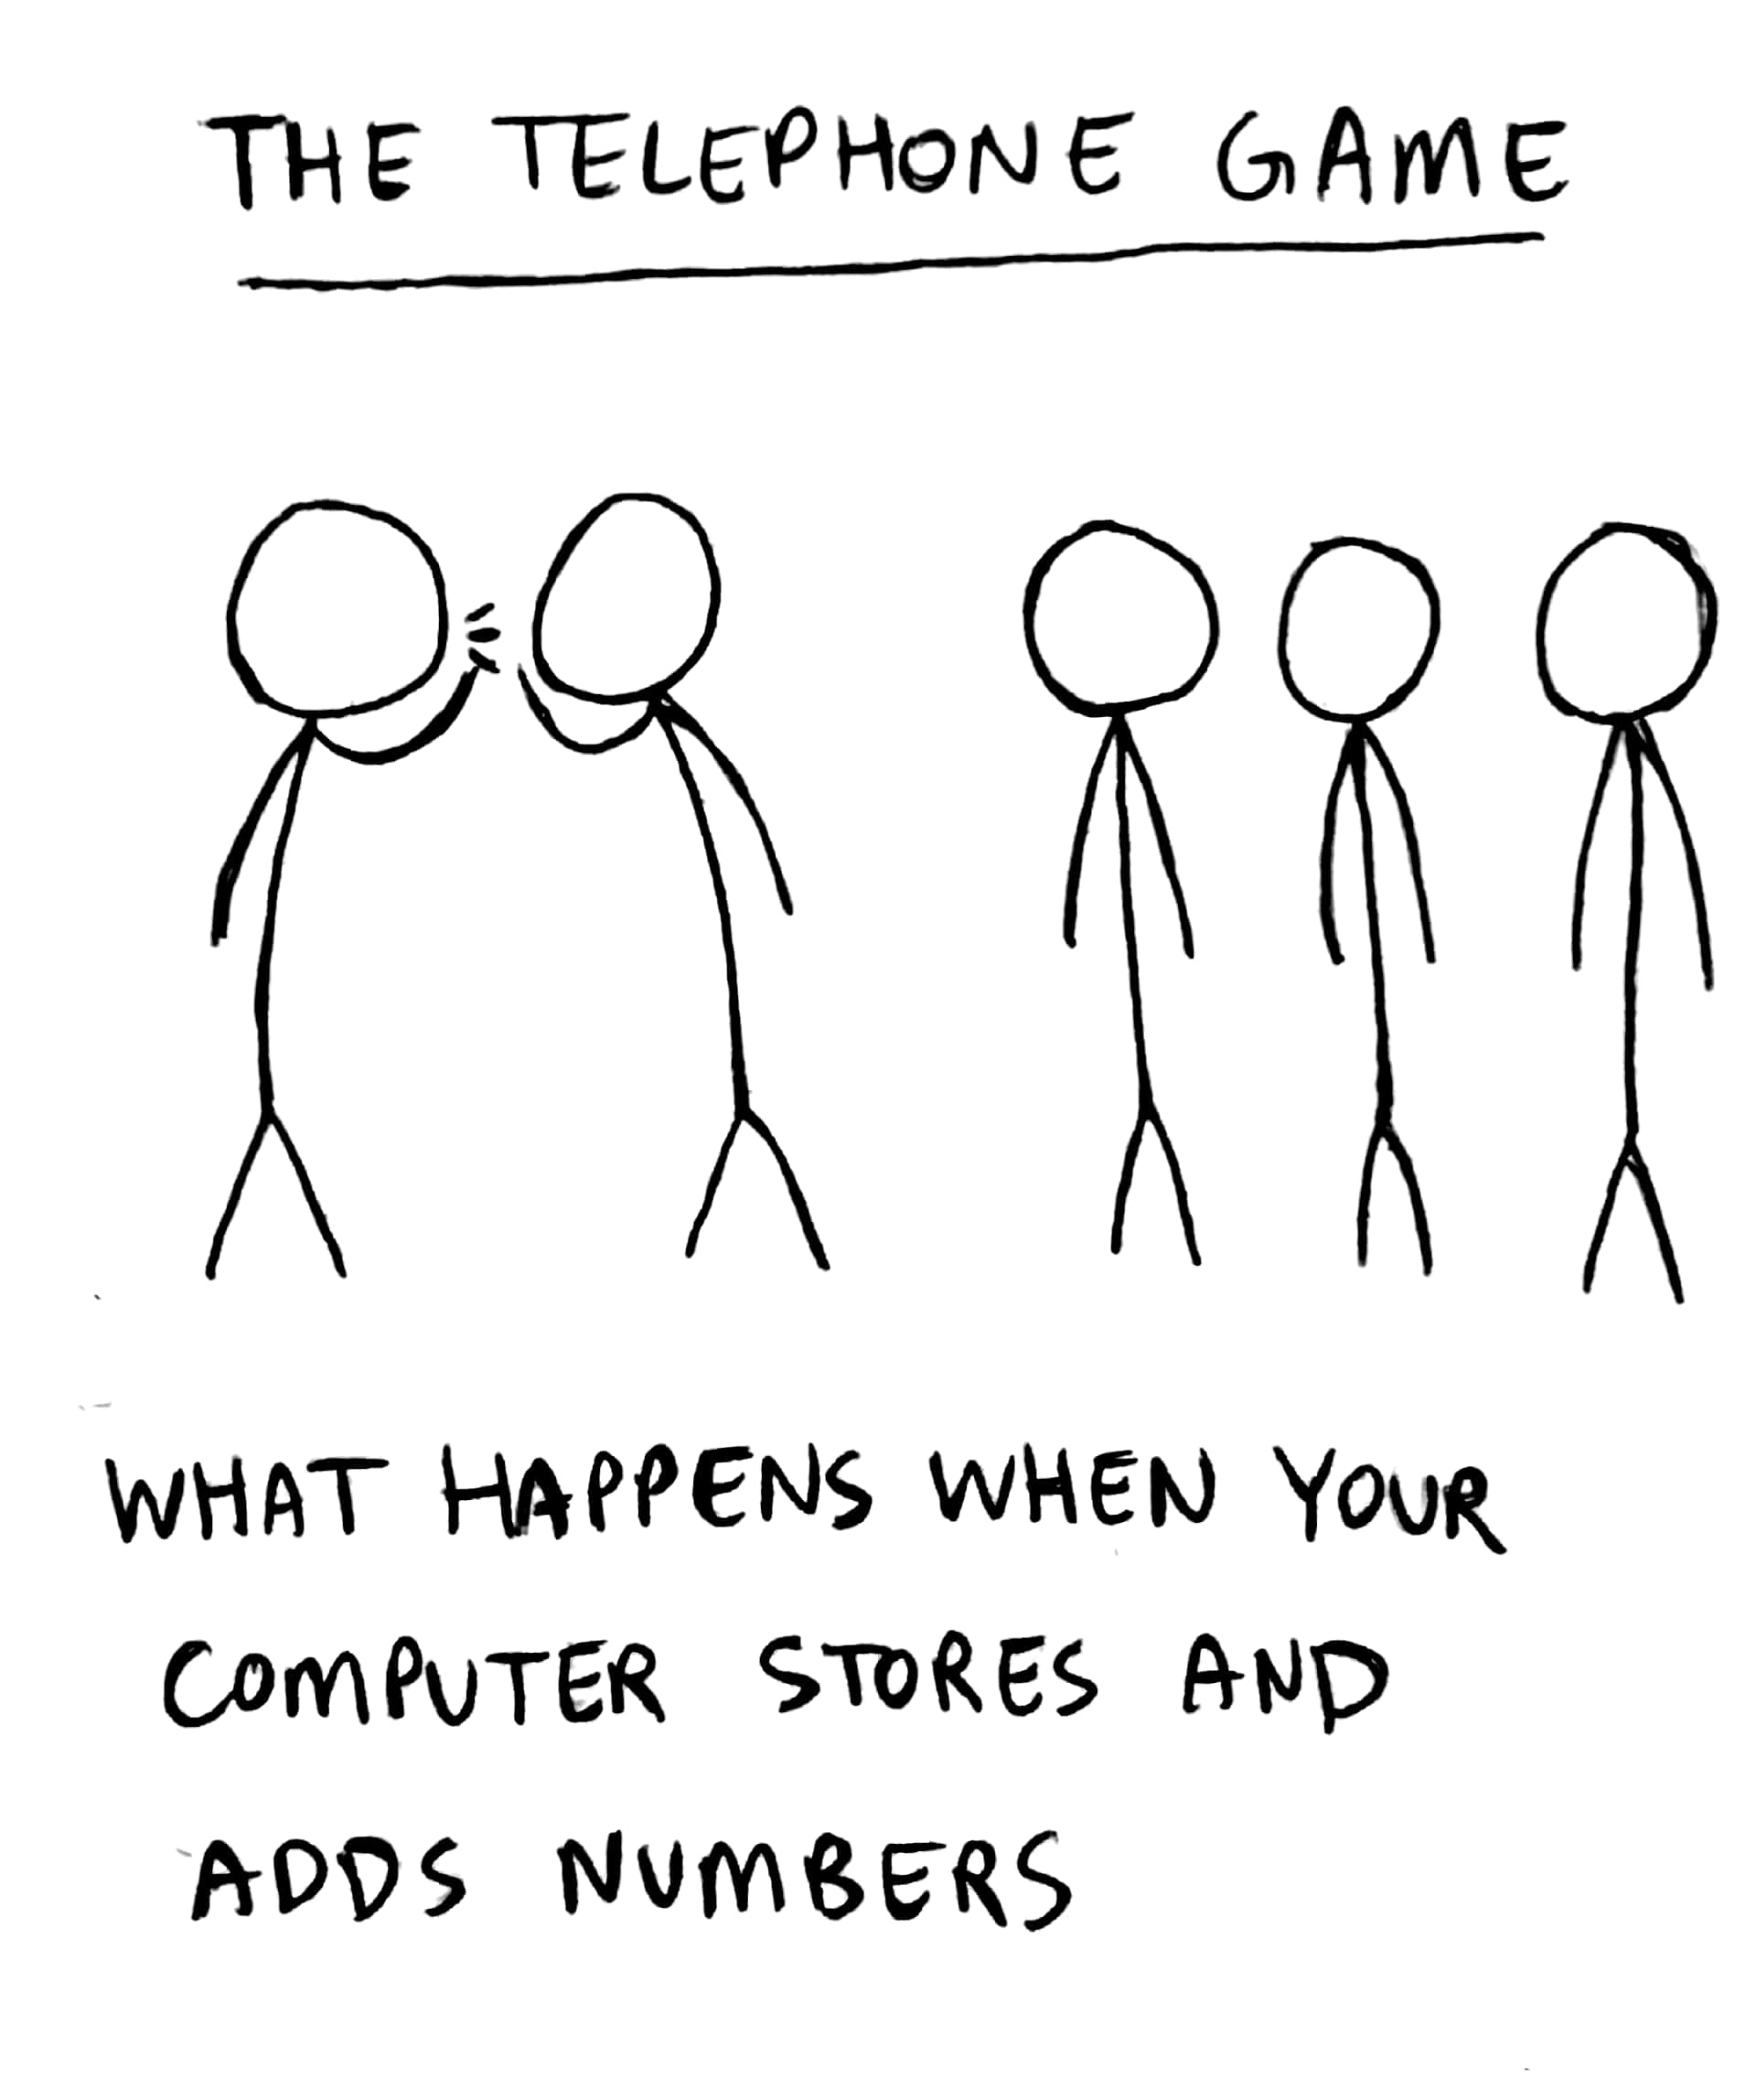 THE TELEPHONE GAME
WHAT HAPPENS WHEN YOUR
COMPUTER STORES AND
ADDS NUMBERS